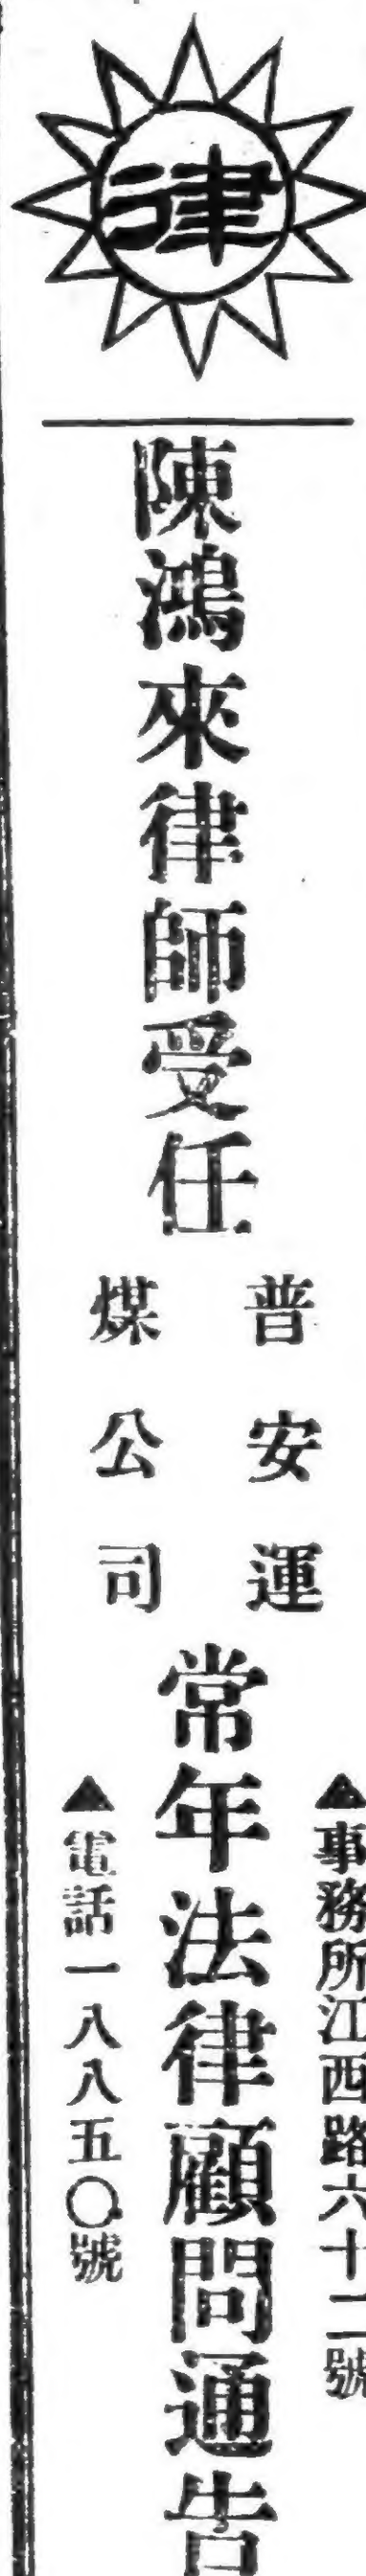 律
陳鴻來律師受任
普安運
煤公司
常年法律顧問通告
▲事務所江西路六十二號
▲電話一八八五〇號